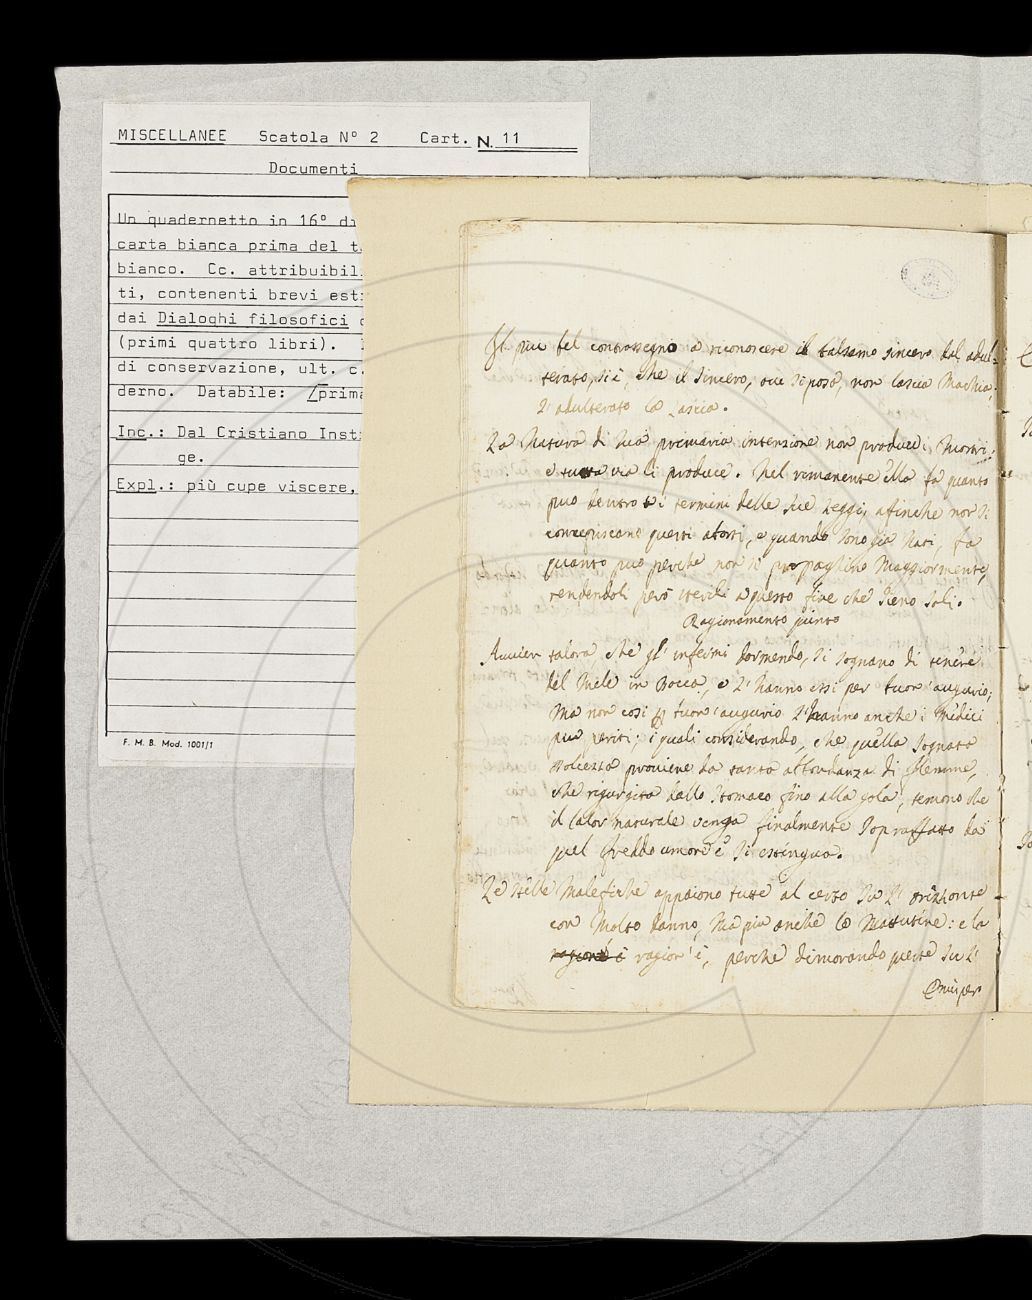 MISCELLANEE Scatola N° 2 Cart. N. 11
Documenti
Un quadernetto in 16° di
carta bianca prima del t
bianco. Cc. attribuibil
ti, contenenti brevi est
dai Dialoghi filosofici
(primi quattro libri).
di conservazione, ult. c.
derno. Databile: /prima
Inc.: Dal Cristiano Inst
ge.
Expl.: più cupe viscere,
F. M. B. Mod. 1001/1
Il piu bel contrassegno a riconoscere il balsamo sincero dal adul-
terato, si è, che il sincero, ove si posa, non lascia Machia,
L'adulterato la Lascia.
La Natura di sua premiaria intenzione non produce i Mostri,
e tutta via li produce. Nel rimanente ella fa quanto
può dentro i termini delle sue Leggi, afinche non si
concepiscano questi aborti, e quando sono gia Nati, fa
quanto può perche non si propaghino Maggiormente,
rendendoli però sterili a questo fine che sieno soli.
Ragionamento quinto
Avvien talora, che gl'infermi dormendo, si sognano di tenere
del Mele in Bocca, e L'hanno essi per buon'augurio;
Ma non cosi buon'augurio L'hanno anche i Medici
più periti; i quali considerando, che quella sognata
dolcezza proviene da tanta abbondanza di flemme,
che rigurgita dallo stomaco fino alla gola, temono che
il calor naturale venga finalmente sopraffatto da
quel freddo umore e si estingua.
Le stelle Malefiche appaiono tutte al certo su L'orizzonte
con Molto danno, Ma più anche le Mattutine: e la
ragione è ragion'è, perche dimorando queste su L'